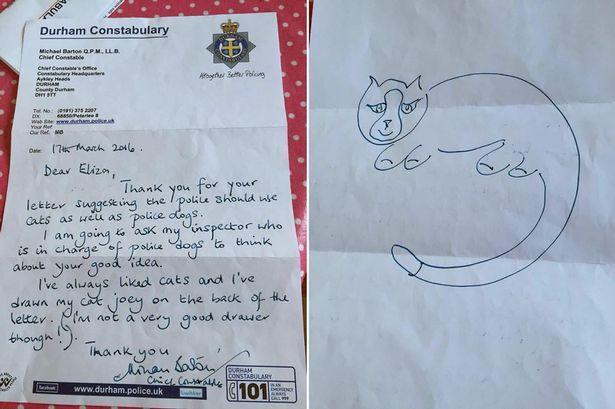 Durham Constabulary
Michael Barton Q.P.M., LL.B.
Chief Constable
Chief Constable's Office
Constabulary Headquarters
Aykley Heads
DURHAM
County Durham
DH1 5TT
Altogether Better Policing
Tel. No.: (0191) 375 2207
DX: 68850/Peterlee 8
Web Site: www.durham.police.uk
Your Ref:
Our Ref: MB
Date: 17th March 2016.
Dear Eliza,
Thank you for your
letter suggesting the police should use
cats as well as police dogs.
I am going to ask my inspector who
is in charge of police dogs to think
about your good idea.
I've always liked cats and I've
drawn my cat joey on the back of the
letter. (I'm not a very good drawer
though!).
Thank you
Chief Constable
facebook
www.durham.police.uk
twitter
DURHAM
CONSTABULARY
101
IN AN
EMERGENCY
ALWAYS
CALL 999